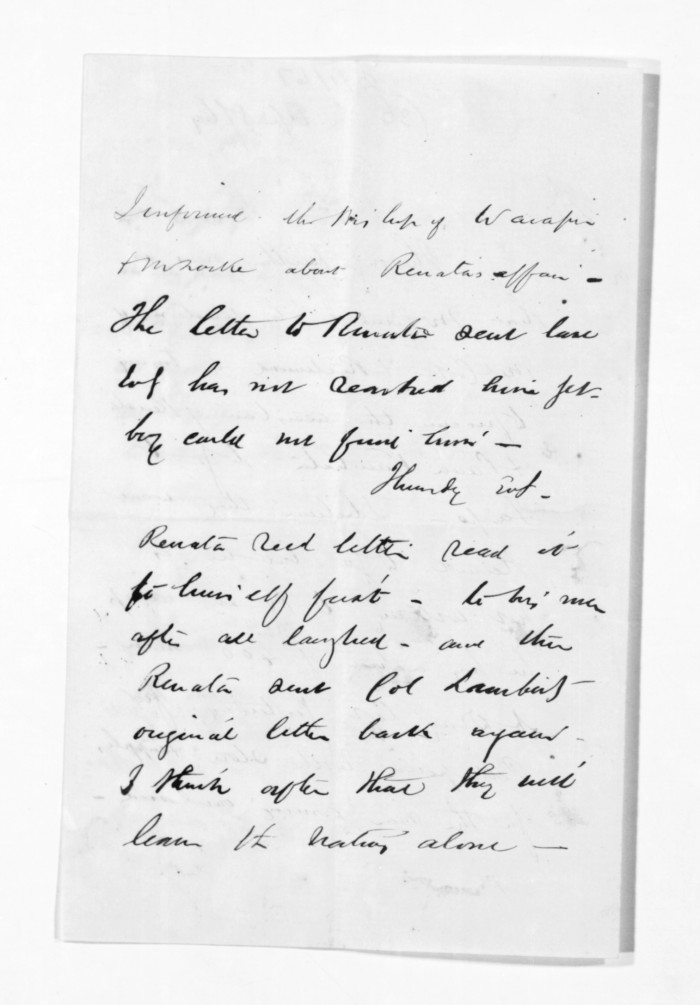 I informed the Bishop of Waiapu
about Renatas affair -
The letter to Renata sent last
Evg has not reached him yet -
boy could not find him -
Thursdy Evg -
Renata recd letter read it
to himself first - to his men
after all laughed - and then
Renata sent Col Lambert's
original letter back again -
I think after that they will
leave the natives alone -